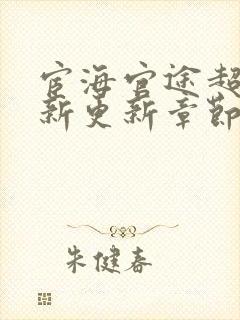 宦海官途超
新更新章節
朱健春